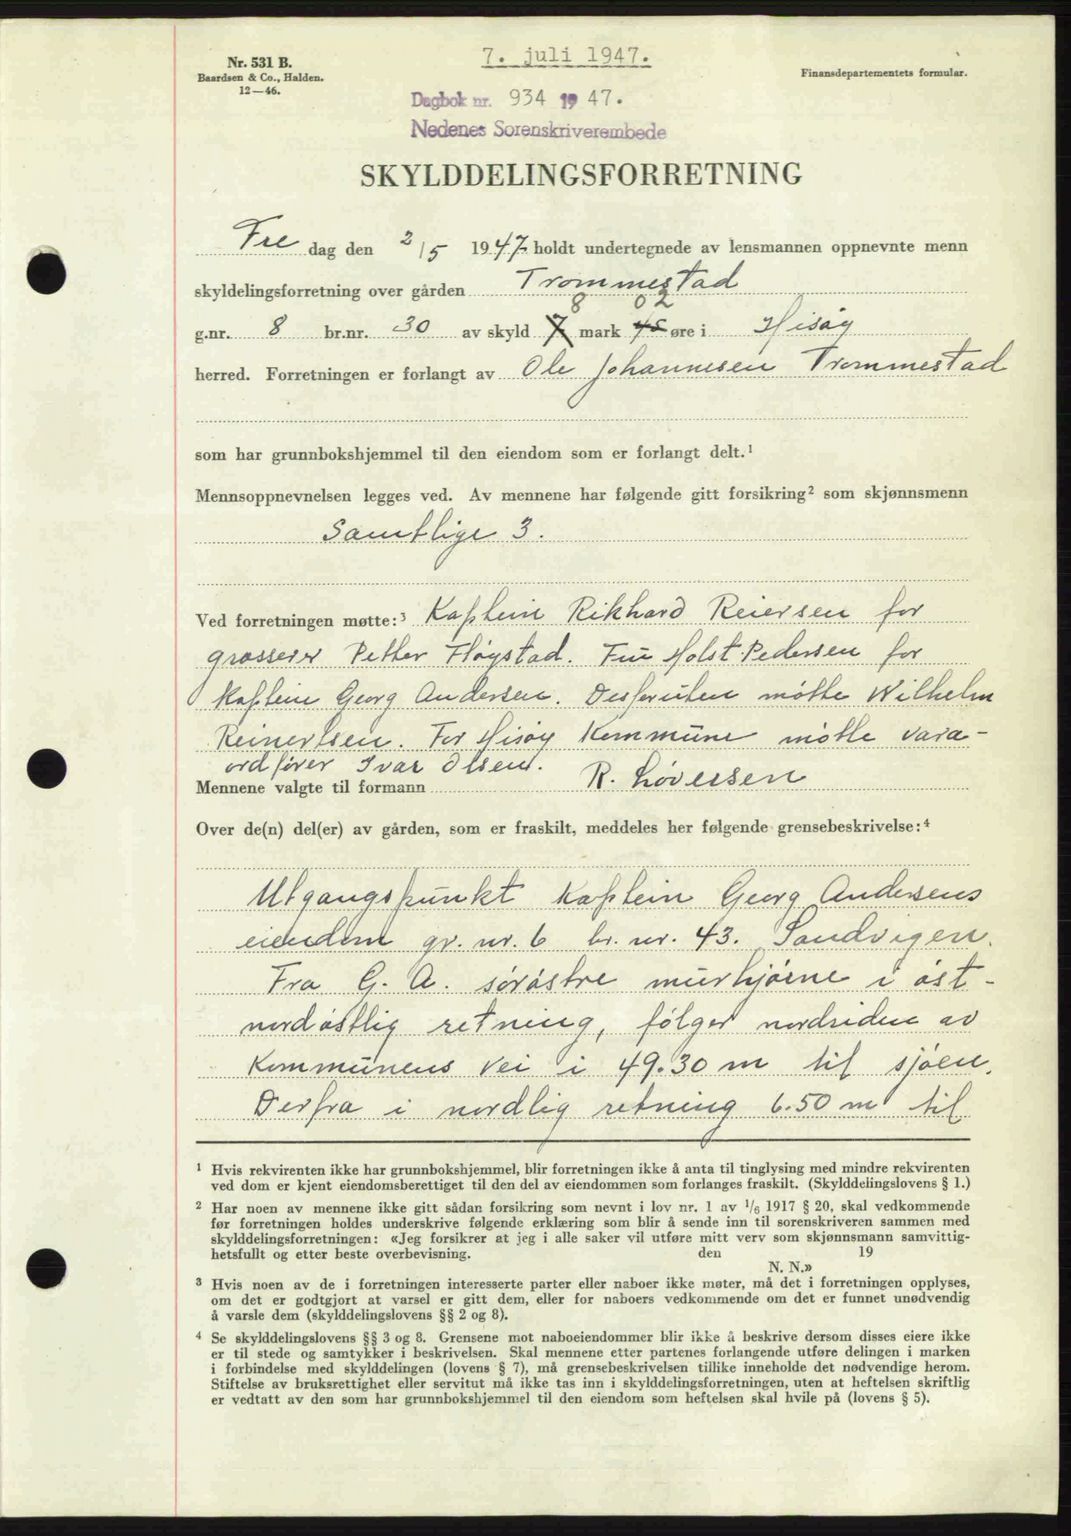 Nr. 531 B.
Baardsen & Co., Halden.
12—46.
7. juli 1947.
Finansdepartementets formular.
Dagbok nr. 934 1947.
Nedenes Sorenskriverembede
SKYLDDELINGSFORRETNING
Fre dag den 2/5 1947 holdt undertegnede av lensmannen oppnevnte menn
skyldelingsforretning over gården Trommestad
8 02
g.nr. 8 br.nr. 30 av skyld 7 mark 45 øre i Hisøy
herred. Forretningen er forlangt av Ole Johannesen Trommestad
som har grunnbokshjemmel til den eiendom som er forlangt delt.¹
Mennsoppnevnelsen legges ved. Av mennene har følgende gitt forsikring² som skjønnsmenn
Samtlige 3.
Ved forretningen møtte:³ Kaptein Rikhard Reiersen for
grosserer Petter Fløystad. Fru Holst-Pedersen for
Kaptein Georg Andersen. Desforuten møtte Wilhelm
Reinertsen. For Hisøy Kommune møtte vara-
ordfører Ivar Olsen.
Mennene valgte til formann R. Løversen
Over de(n) del(er) av gården, som er fraskilt, meddeles her følgende grensebeskrivelse:⁴
Utgangspunkt Kaptein Georg Andersens
eiendom gr. nr. 6 br. nr. 43. Sandvigen.
Fra G. A. sørøstre murhjørne i øst-
nordøstlig retning, følger nordsiden av
Kommunens vei i 49.30 m til sjøen.
Derfra i nordlig retning 6.50 m til
¹ Hvis rekvirenten ikke har grunnbokshjemmel, blir forretningen ikke å anta til tinglysing med mindre rekvirenten
ved dom er kjent eiendomsberettiget til den del av eiendommen som forlanges fraskilt. (Skylddelingslovens § 1.)
² Har noen av mennene ikke gitt sådan forsikring som nevnt i lov nr. 1 av 1/6 1917 § 20, skal vedkommende
før forretningen holdes underskrive følgende erklæring som blir å sende inn til sorenskriveren sammen med
skylddelingsforretningen: «Jeg forsikrer at jeg i alle saker vil utføre mitt verv som skjønnsmann samvittig-
hetsfullt og etter beste overbevisning. den 19
N. N.»
³ Hvis noen av de i forretningen interesserte parter eller naboer ikke møter, må det i forretningen opplyses,
om det er godtgjort at varsel er gitt dem, eller for naboers vedkommende om det er funnet unødvendig
å varsle dem (skylddelingslovens §§ 2 og 8).
⁴ Se skylddelingslovens §§ 3 og 8. Grensene mot naboeiendommer blir ikke å beskrive dersom disses eiere ikke
er til stede og samtykker i beskrivelsen. Skal mennene etter partenes forlangende utføre delingen i marken
i forbindelse med skylddelingen (lovens § 7), må grensebeskrivelsen tillike inneholde det nødvendige herom.
Stiftelse av bruksrettighet eller servitut må ikke tas inn i skylddelingsforretningen, uten at heftelsen skriftlig
er vedtatt av den som har grunnbokshjemmel til den eiendom som heftelsen skal hvile på (lovens § 5).